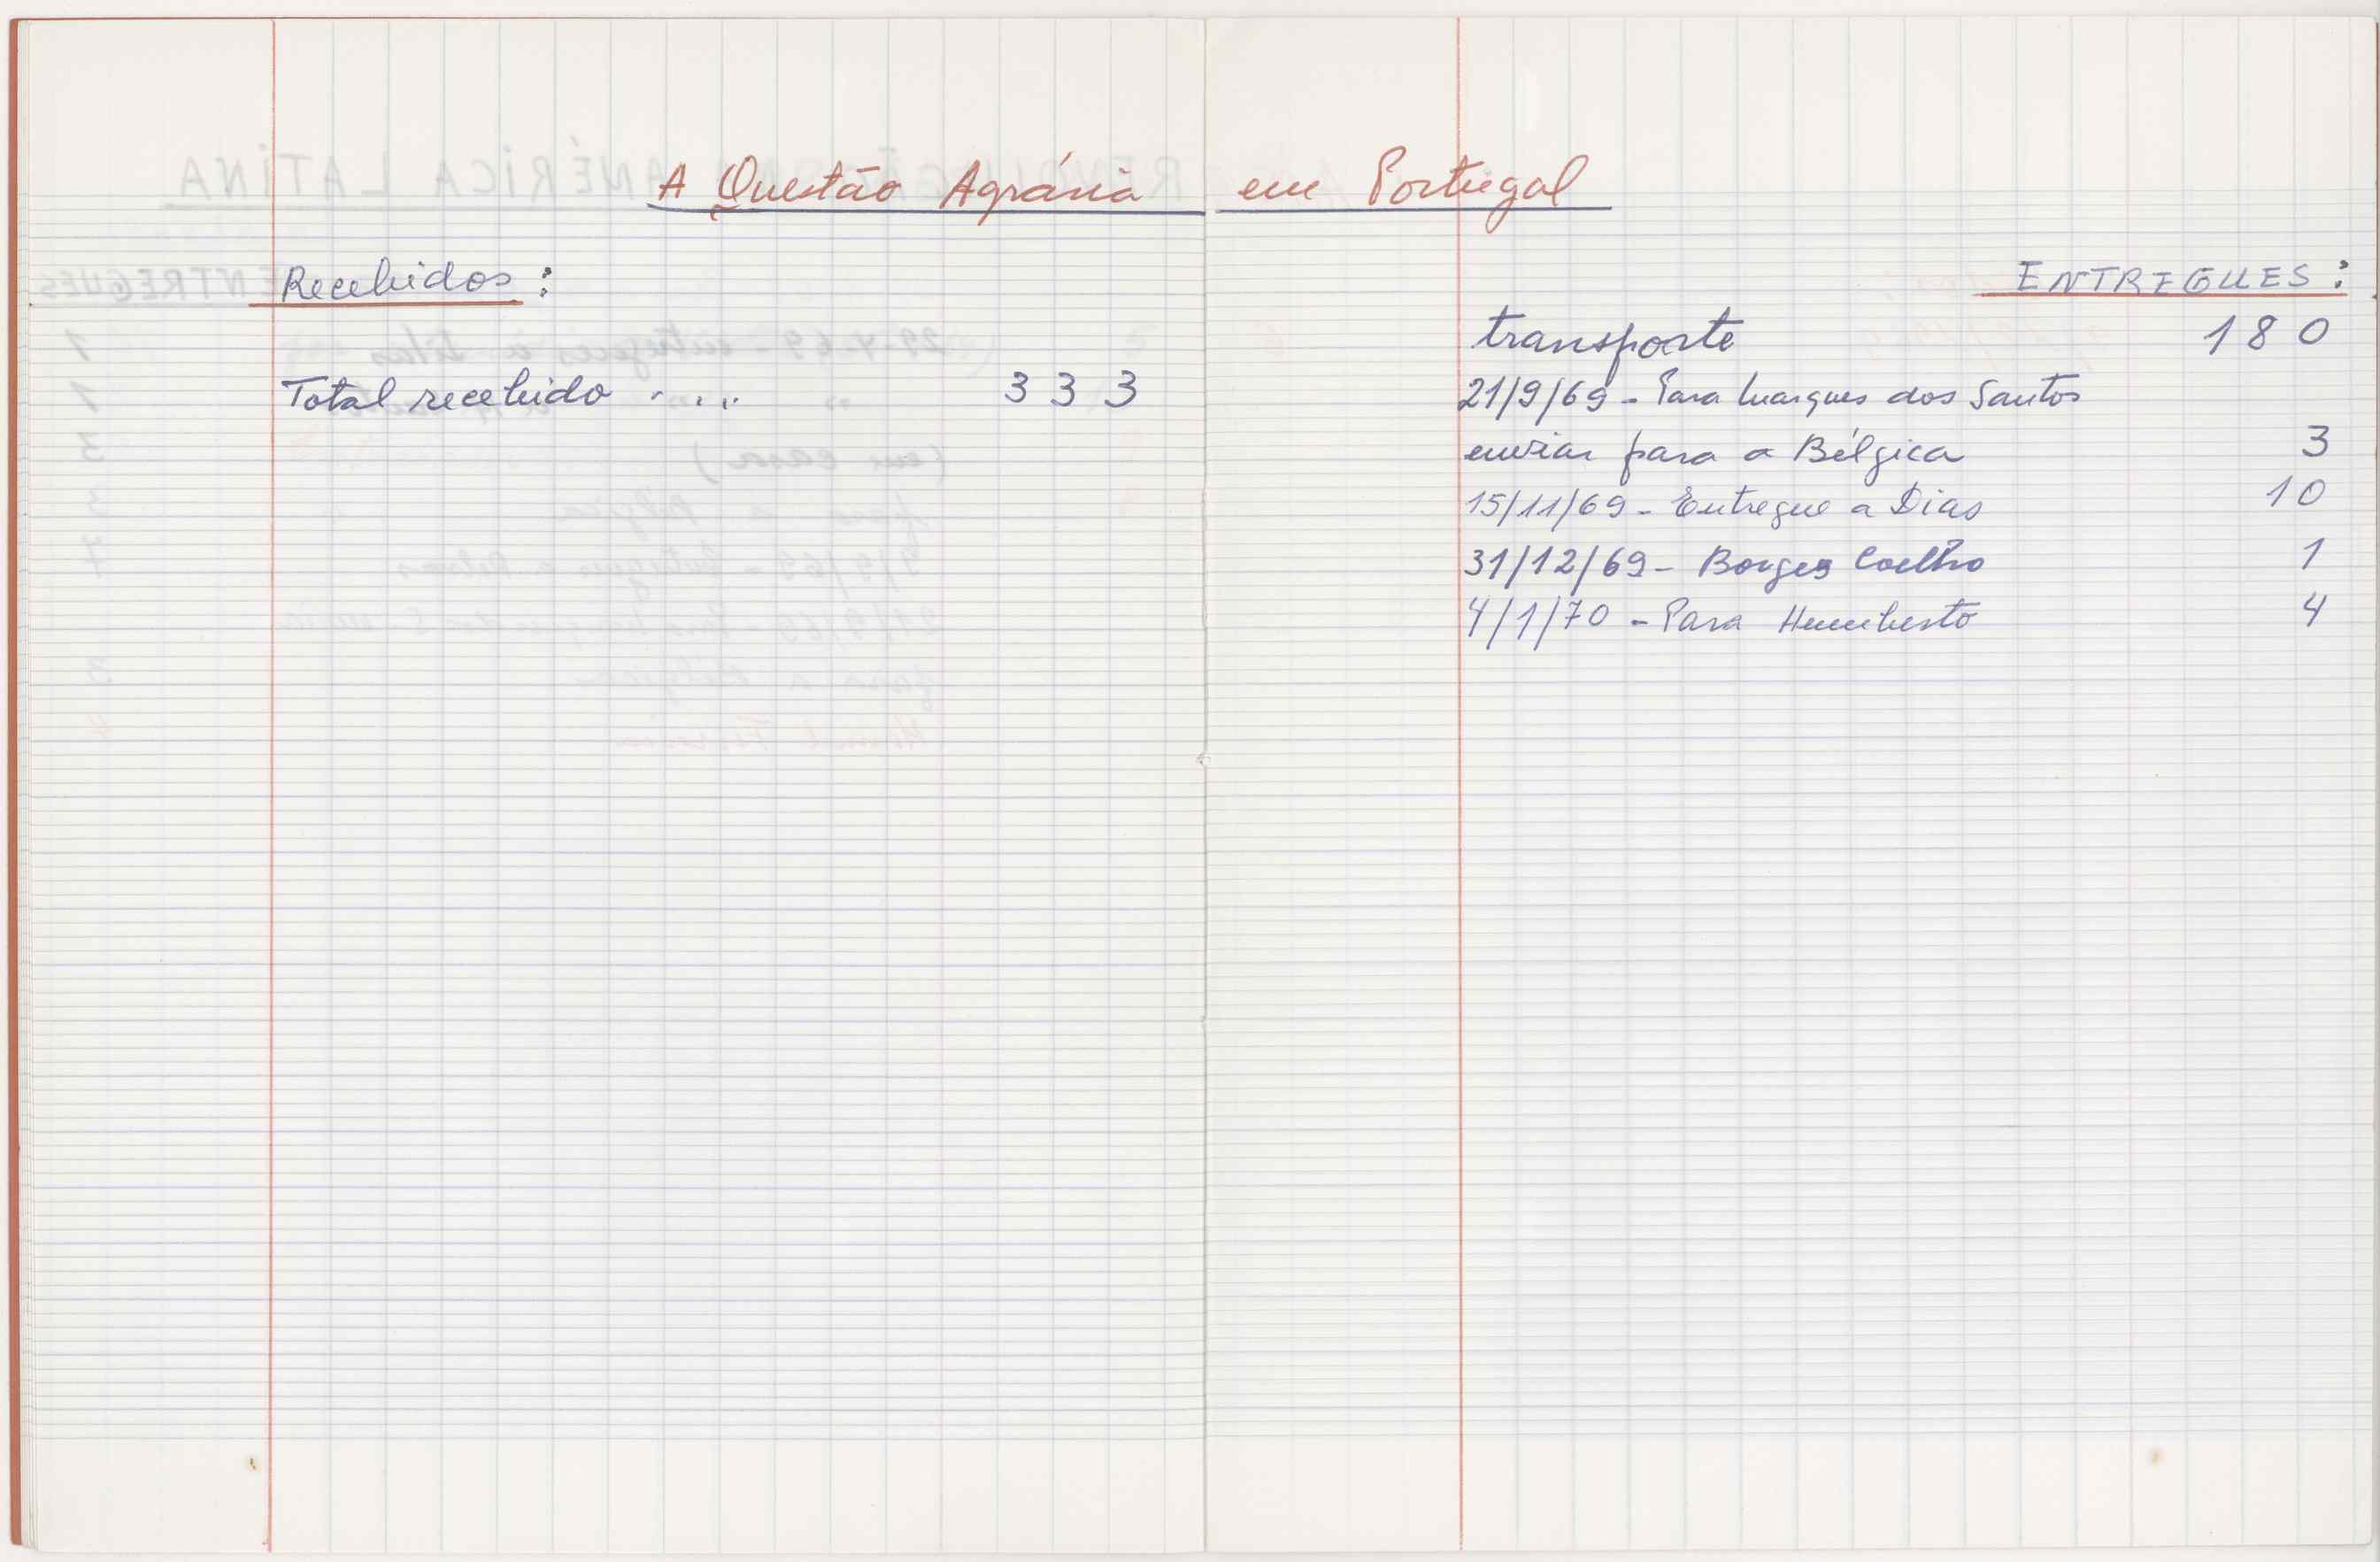 A Questão Agrária em Portugal
Recebidos :
Total recebido . ... 333
ENTREGUES :
transporte 180
21/9/69 - Para Marques dos Santos
enviar para a Bélgica 3
15/11/69 - Entregue a Dias 10
31/12/69 - Borges Coelho 1
4/1/70 - Para Humberto 4